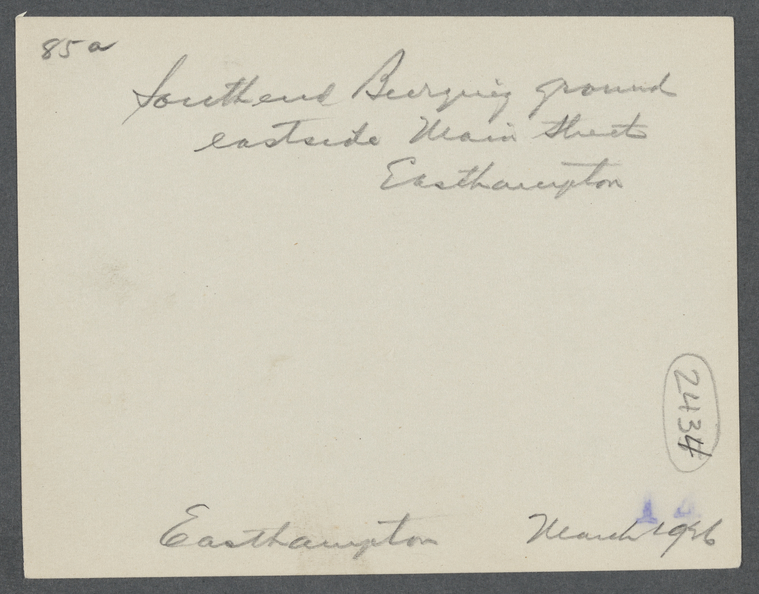 85a
Southend Burying ground
eastside Main Street
Easthampton
2434
Easthampton March 1926